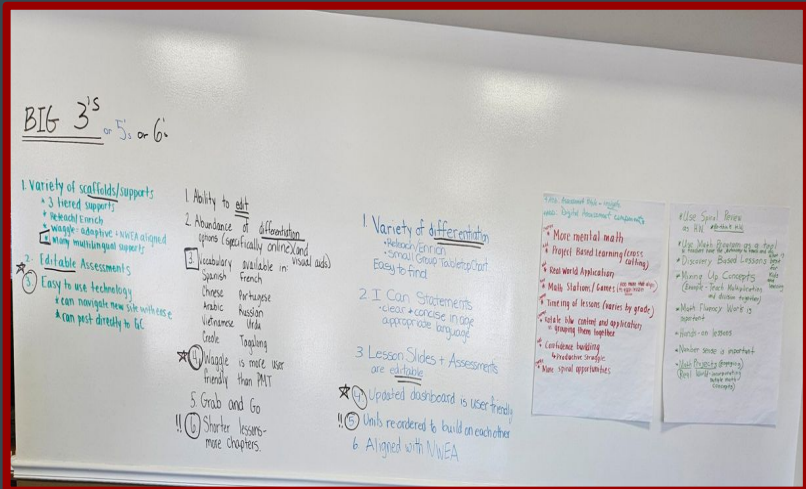 BIG 3's or 5's or 6's
1. Variety of scaffolds/supports
* 3 tiered supports
* Reteach/Enrich
* Waggle = adaptive + NWEA aligned
* many multilingual supports
2. Editable Assessments
3. Easy to use technology
* can navigate new site with ease
* can post directly to GC
1. Ability to edit
2. Abundance of differentiation
options (specifically online)(and
visual aids)
3. Vocabulary available in:
Spanish French
Chinese Portugese
Arabic Russian
Vietnamese Urdu
Creole Tagalong
4. Waggle is more user
friendly than PMT
5. Grab and Go
!! 6 Shorter lessons-
more chapters.
1. Variety of differentiation
• Reteach/Enrich
• Small Group Tabletop Chart
Easy to find
2. I Can Statements
- clear + concise in age
appropriate language
3 Lesson Slides + Assessments
are editable
4. Updated dashboard is user friendly
!! 5 Units reordered to build on each other
6. Aligned with NWEA
More mental math
* Project Based Learning (cross
cutting)
* Real World Application
* Math Stations/Games
* Timing of lessons (varies by grade)
* Relate like content and application
= grouping them together
* Confidence building
↳ Productive struggle
* More spiral opportunities
* Use Spiral Review
as HW
* Use Math Program as a tool
* Discovery Based Lessons
* Mixing Up Concepts
(Example - Teach Multiplication
and division together)
* Math Fluency Work is
important
* Hands-on lessons
* Number sense is important
* Math Projects
(Real World